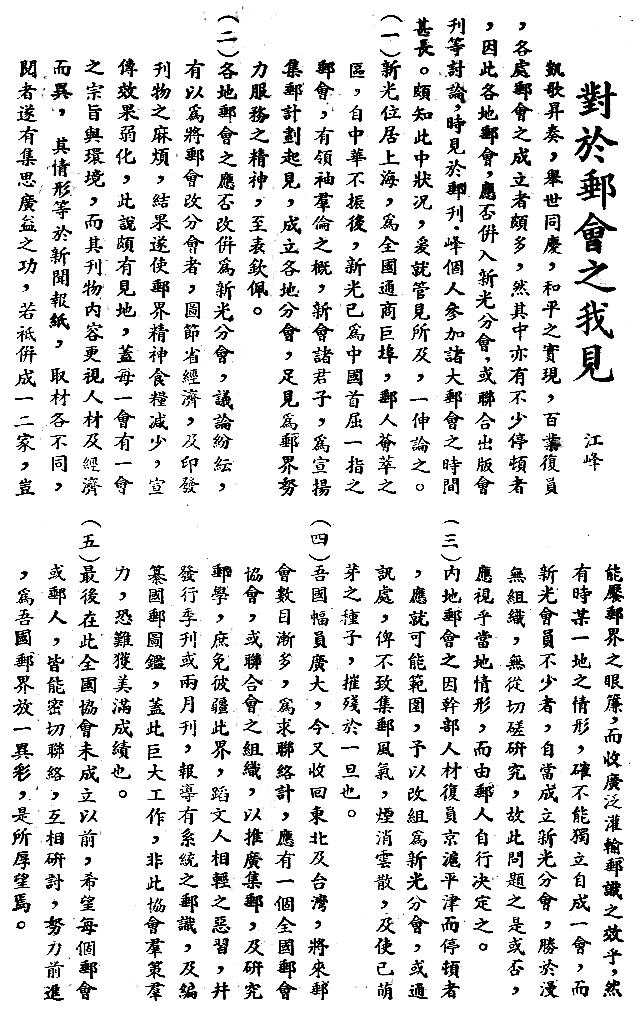 對於郵會之我見
江峰
凱歌昇奏，舉世同慶，和平之實現，百業復員
，各處郵會之成立者頗多，然其中亦有不少停頓者
，因此各地郵會，應否併入新光分會，或聯合出版會
刊等討論，時見於郵刊．峰個人參加諸大郵會之時間
甚長。頗知此中狀況，爰就管見所及，一伸論之。
（一）新光位居上海，為全國通商巨埠，郵人薈萃之
區，自中華不振後，新光已為中國首屈一指之
郵會，有領袖羣倫之概，新會諸君子，為宣揚
集郵計劃起見，成立各地分會，足見為郵界努
力服務之精神，至表欽佩。
（二）各地郵會之應否改併為新光分會，議論紛紜，
有以為將郵會改分會者，圖節省經濟，及印發
刊物之麻煩，結果遂使郵界精神食糧減少，宣
傳效果弱化，此說頗有見地，蓋每一會有一會
之宗旨與環境，而其刊物內容更視人材及經濟
而異，其情形等於新聞報紙，取材各不同，
閱者遂有集思廣益之功，若祇併成一二家，豈
能饜郵界之眼簾，而收廣泛灌輸郵識之效乎，然
有時某一地之情形，確不能獨立自成一會，而
新光會員不少者，自當成立新光分會，勝於漫
無組織，無從切磋研究，故此問題之是或否，
應視乎當地情形，而由郵人自行決定之。
（三）內地郵會之因幹部人材復員京滬平津而停頓者
，應就可能範圍，予以改組為新光分會，或通
訊處，俾不致集郵風氣，煙消雲散，及使已萌
芽之種子，摧殘於一旦也。
（四）吾國幅員廣大，今又收回東北及台灣，將來郵
會數目漸多，為求聯絡計，應有一個全國郵會
協會，或聯合會之組織，以推廣集郵，及研究
郵學，庶免彼疆此界，蹈文人相輕之惡習，幷
發行季刊或兩月刊，報導有系統之郵識，及編
纂國郵圖鑑，蓋此巨大工作，非此協會羣策羣
力，恐難獲美滿成績也。
（五）最後在此全國協會未成立以前，希望每個郵會
或郵人，皆能密切聯絡，互相研討，努力前進
，為吾國郵界放一異彩，是所厚望焉。